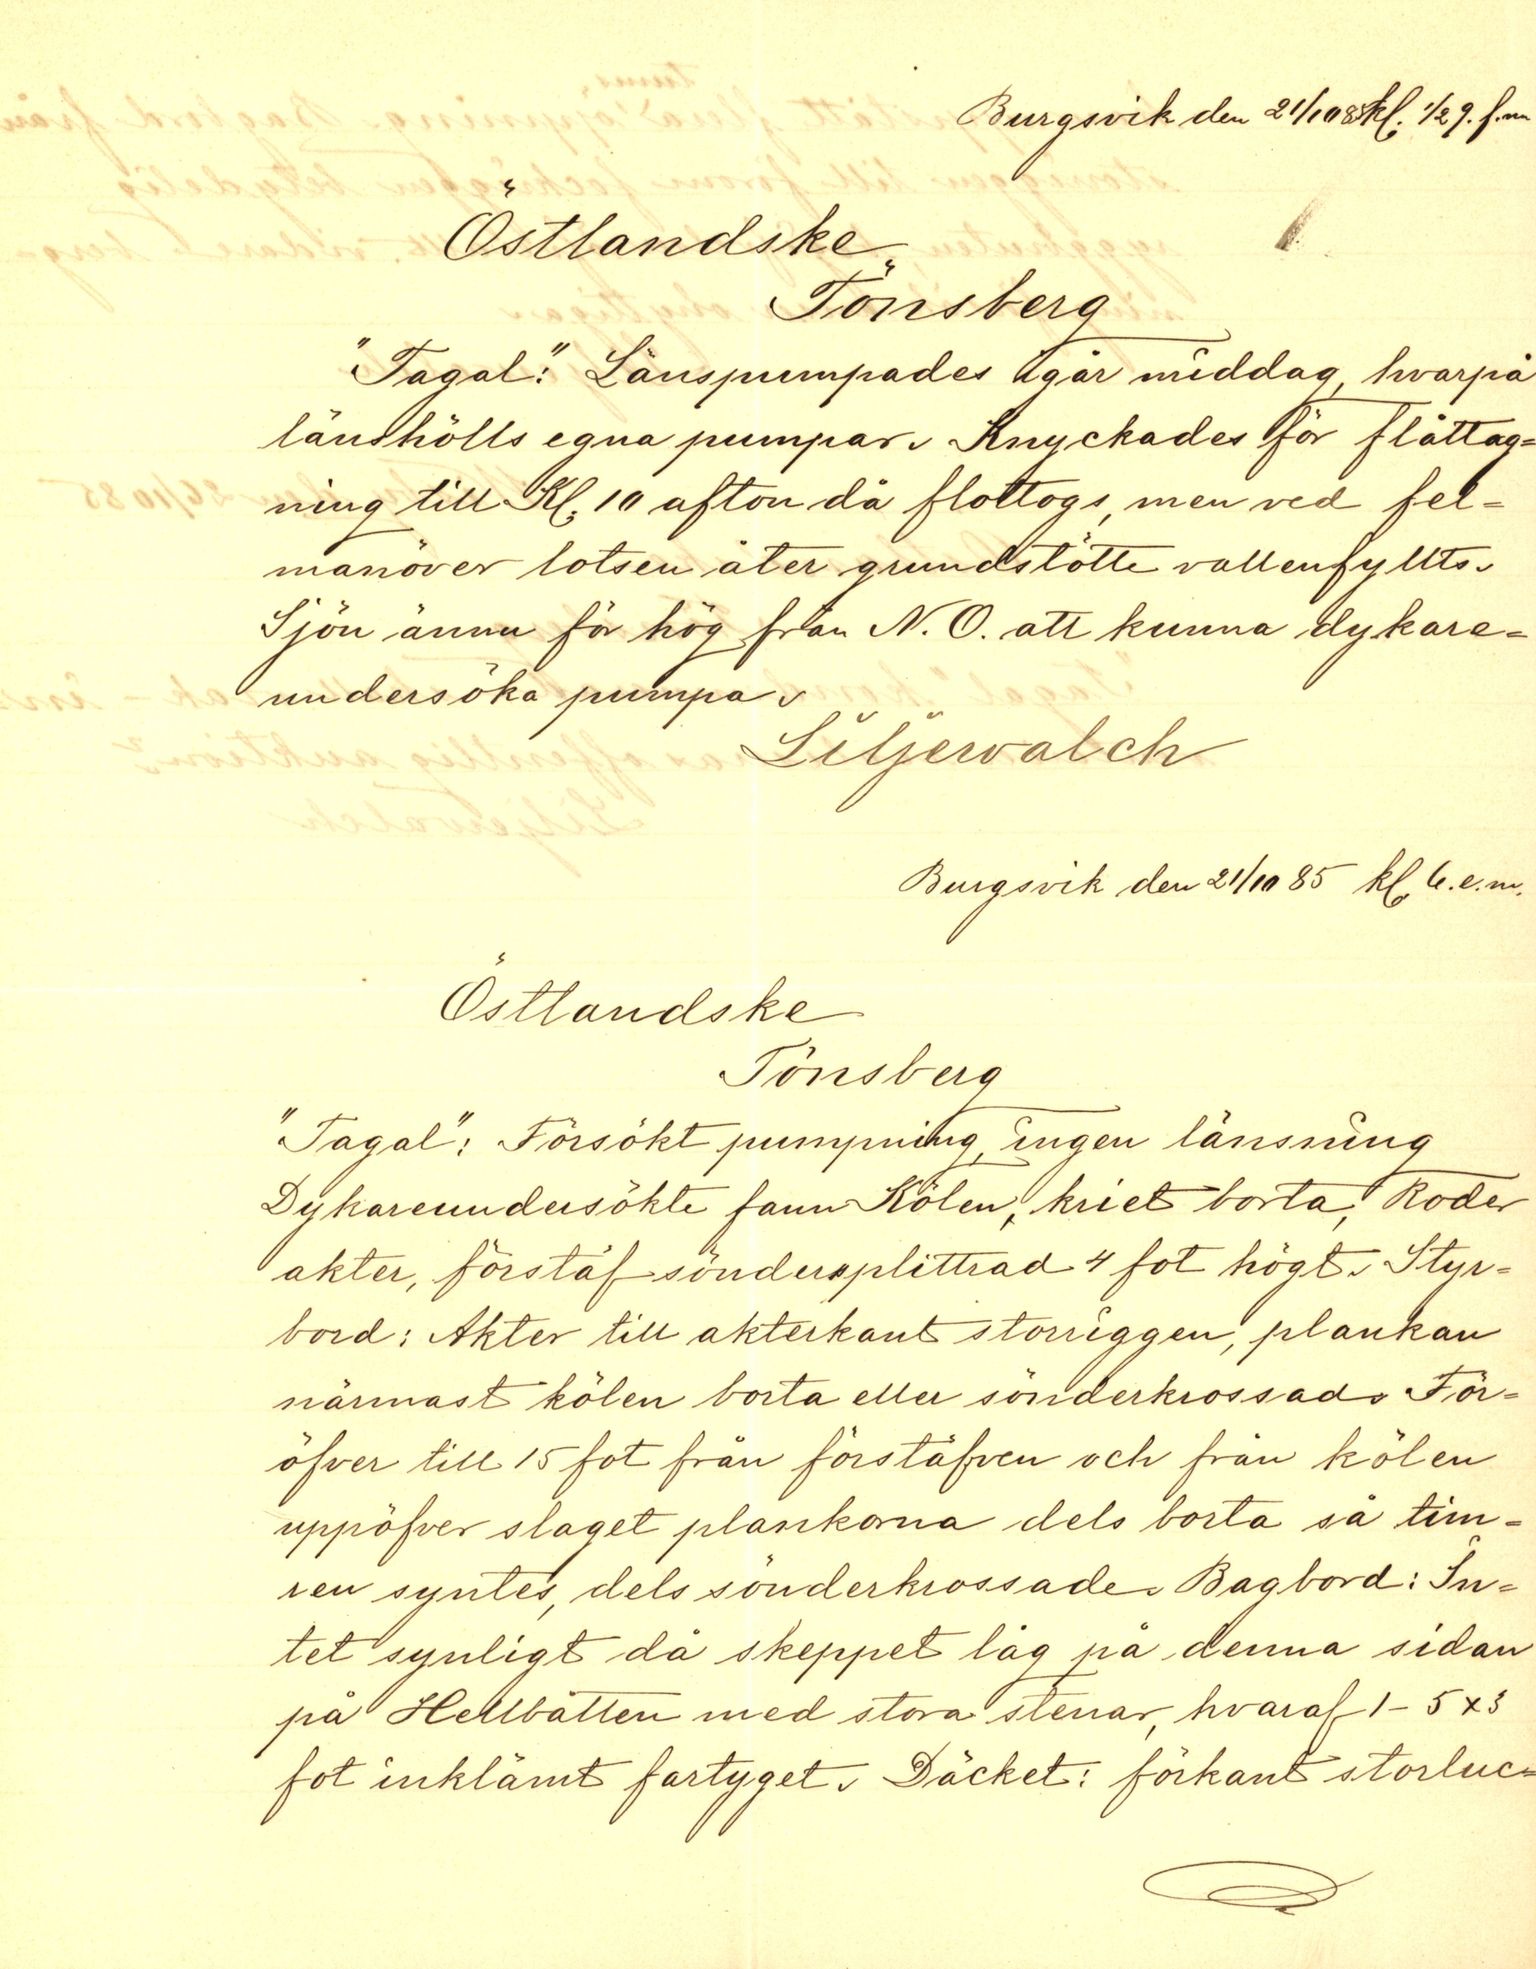 Burgsvik den 21/10 85 kl. 1/2 9. f.m
Östlandske
Tönsberg
"Tagal": Länspumpades igår middag, hvarpå
länshölls egna pumpar. Knyckades för flåttag=
ning till Kl. 10 afton då flottogs, men ved fel=
manöver lotsen åter grundstötte vattenfylltes.
Sjön ännu för hög från N. O. att kunna dykare=
undersöka pumpa.
Liljewalch
Burgsvik den 21/10 85 kl. 6. e.m.
Östlandske
Tönsberg
"Tagal": Försökt pumpning, ingen länsning
Dykareundersökte fann Kölen, kriet borta, Roder
akter, förstäf söndersplittrad 4 fot högt. Styr=
bord: Akter till akterkant storriggen, plankan
närmast kölen borta eller sönderkrossad. För=
öfver till 15 fot från förstäfven och från kölen
uppöfver slaget plankorna dels borta så tim=
ren syntes, dels sönderkrossade. Bagbord: In=
tet synligt då skeppet låg på denna sidan
på Hellbåtten med stora stenar, hvaraf 1 - 5 x 3
fot inklämt fartyget. Däcket: förkant storluc=